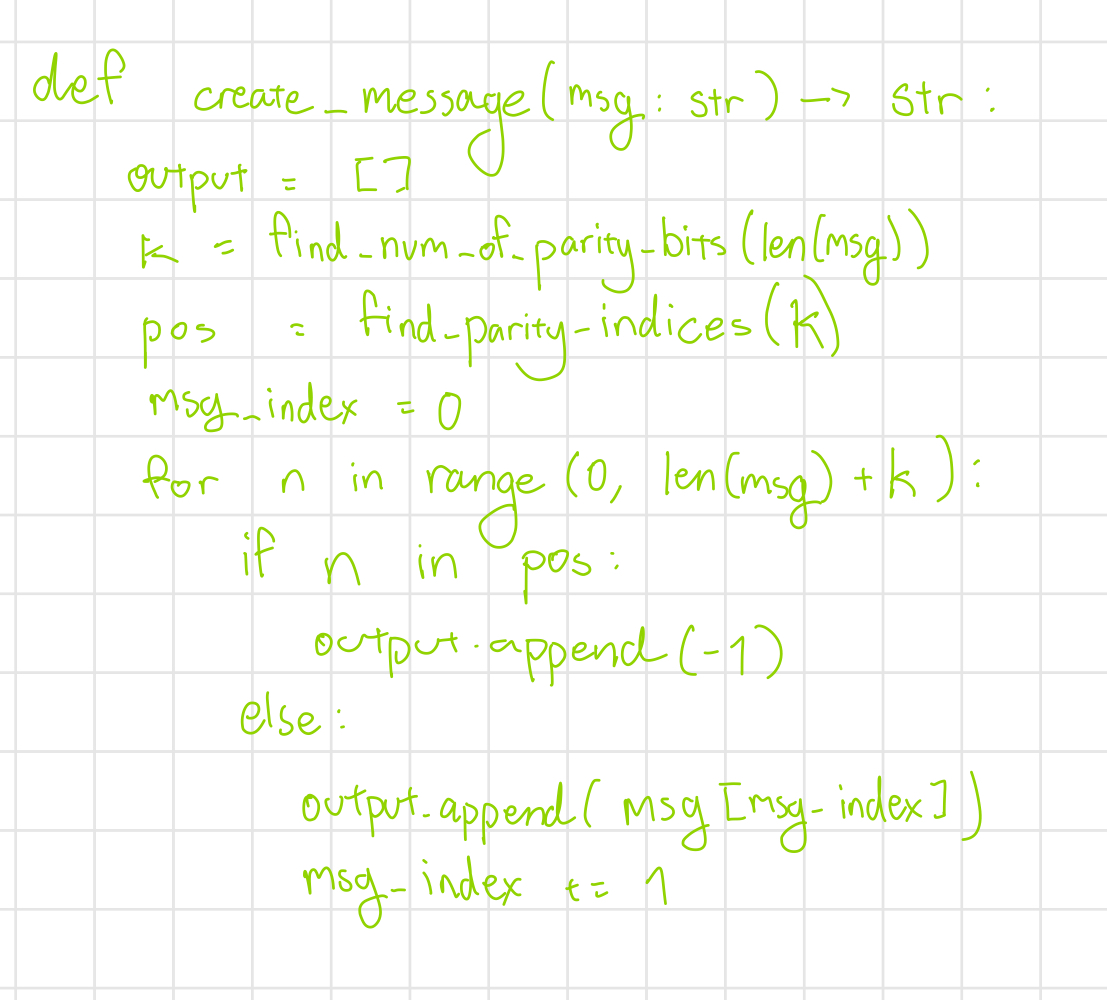 def create_message(msg: str) -> str:
output = []
k = find_num_of_parity_bits(len(msg))
pos = find_parity_indices(k)
msg_index = 0
for n in range(0, len(msg) + k):
if n in pos:
output.append(-1)
else:
output.append(msg[msg_index])
msg_index += 1